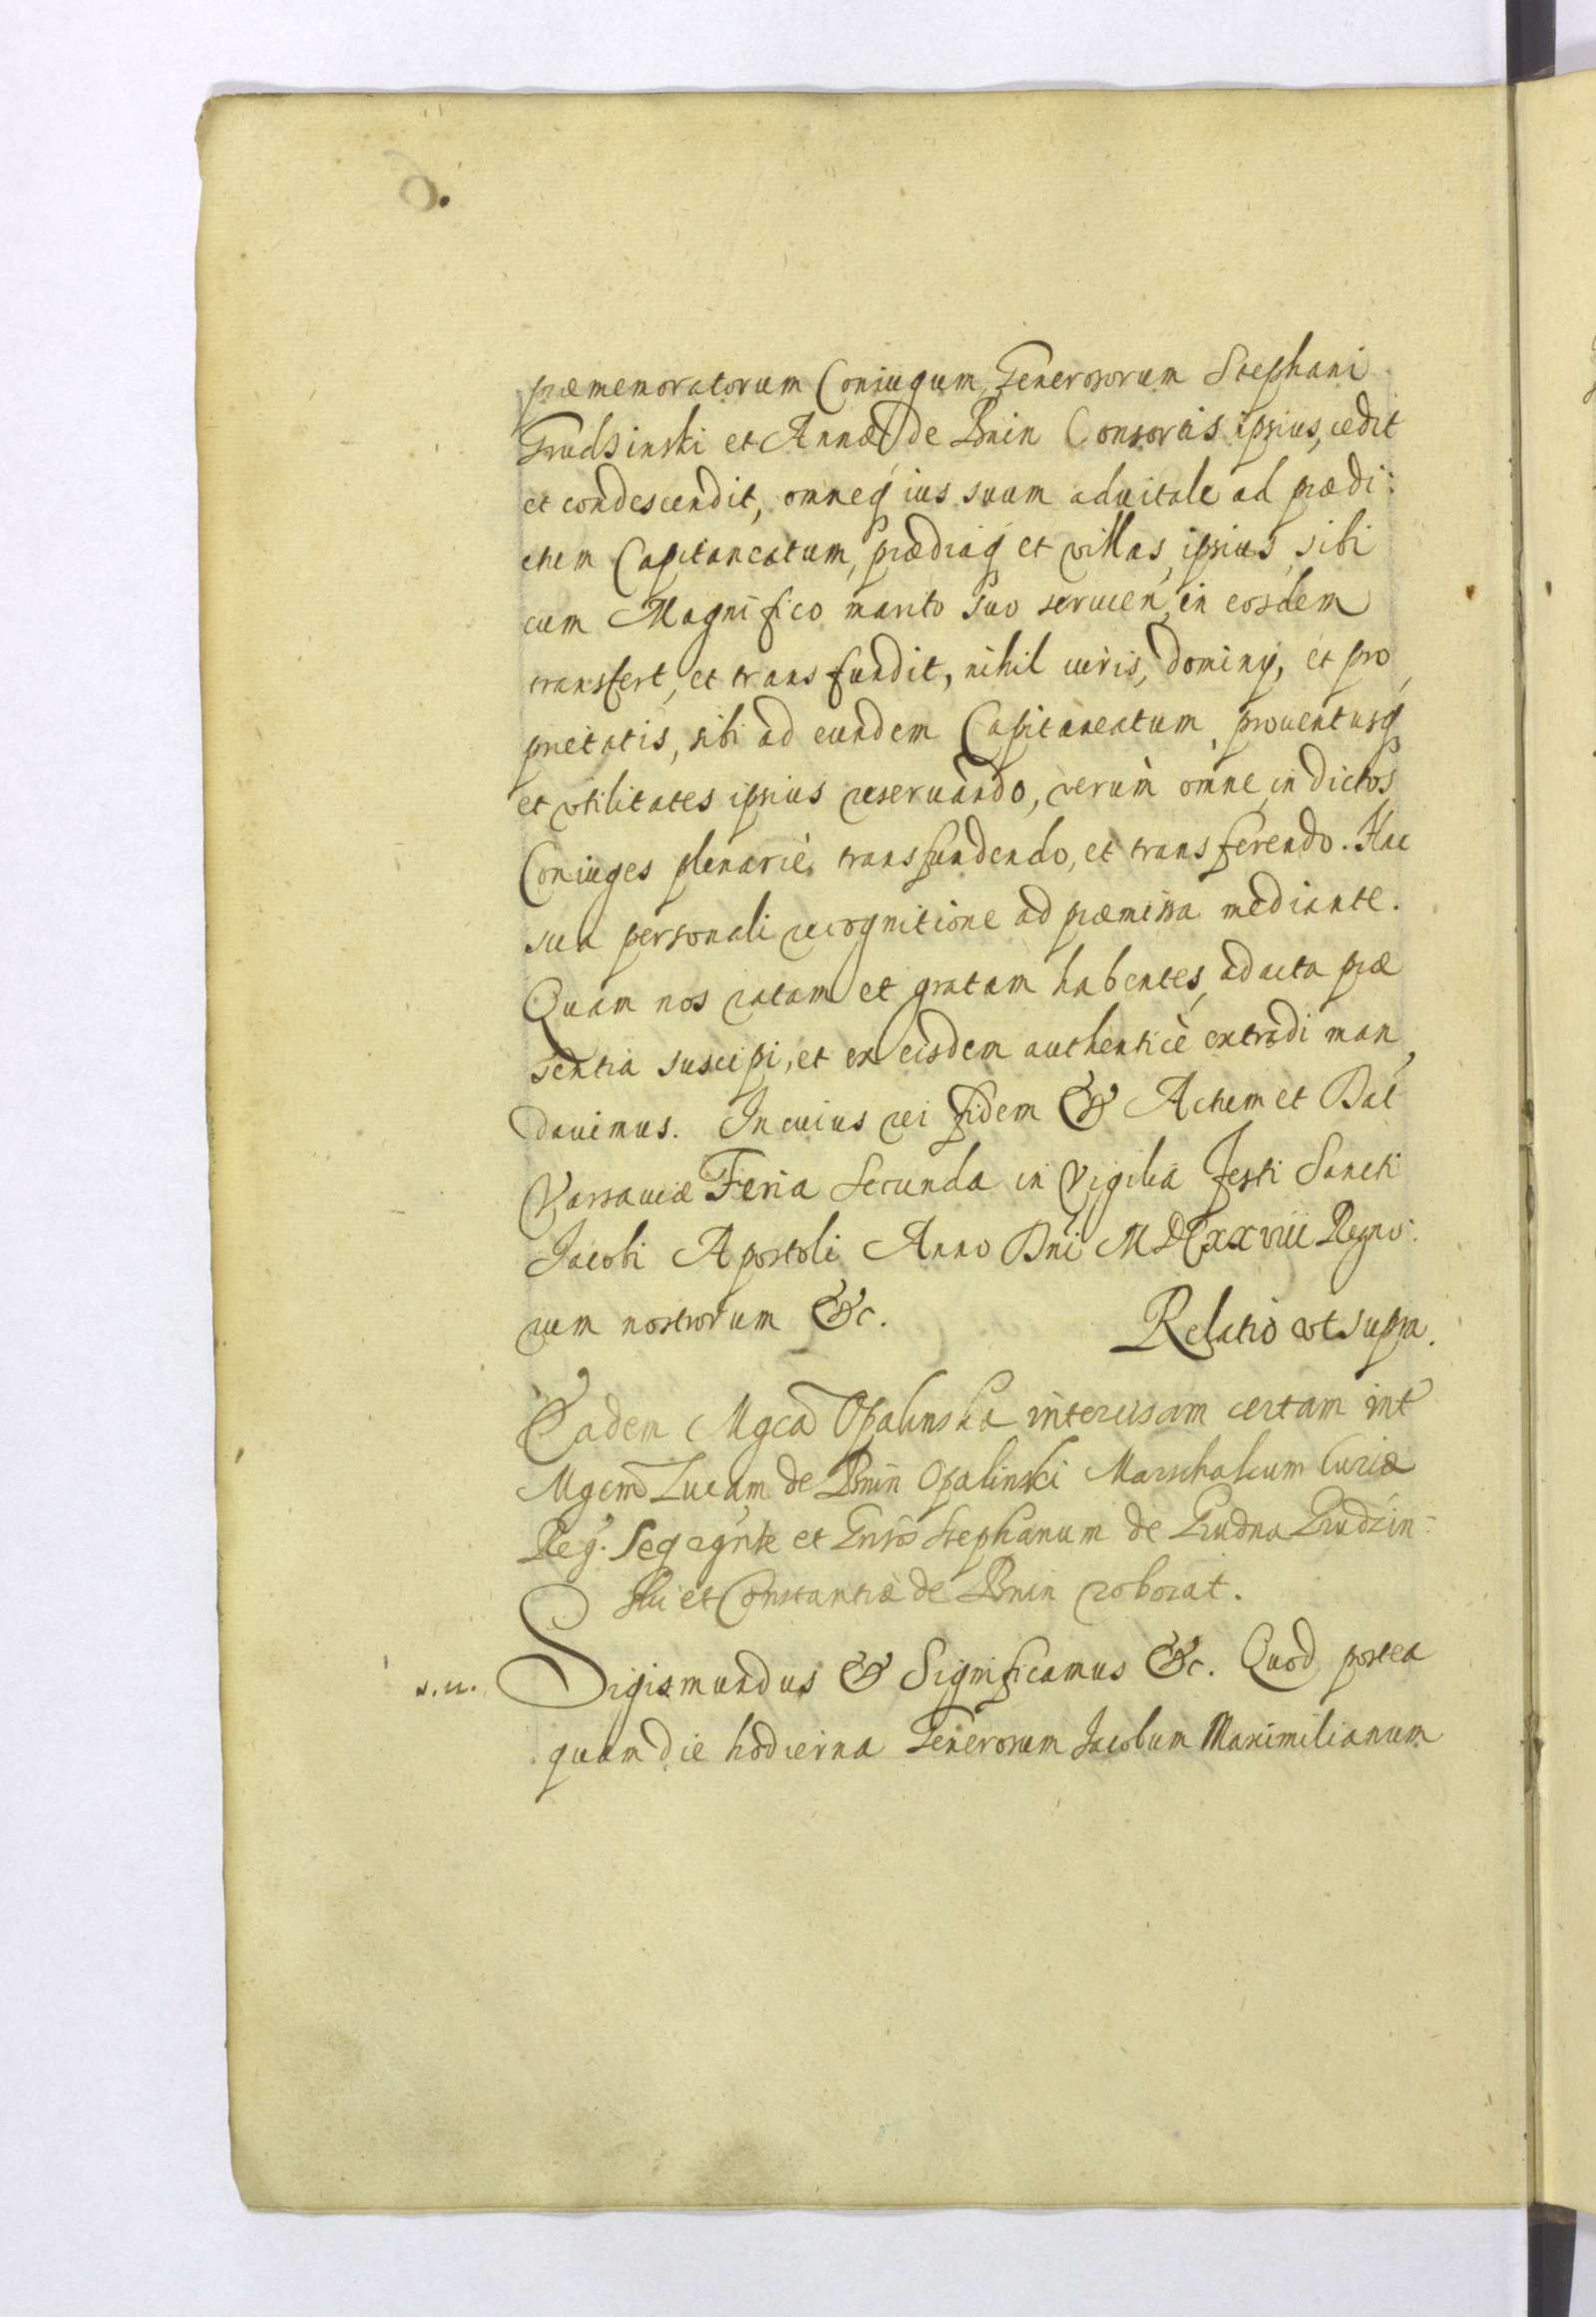 6.
præmemoratorum Coniugum, Generosorum Stephani
Grudzinski et Annæ de Bnin Consortis ipsius, cedit
et condescendit, omneq́ ius suum aduitale ad prædi:
ctum Capitaneatum, prædiaq́ et villas, ipsius, sibi
cum Magnifico marito suo seruien, in eosdem
transfert, et transfundit, nihil iuris, dominÿ, et pro
prietatis, sibi ad eundem Capitaneatum, prouentusq́
et vtilitates ipsius reseruando, verùm omne in dictos
Coniuges plenariè transfundendo, et transferendo. Hac
sua personali recognitione ad præmissa mediante.
Quam nos ratam et gratam habentes, ad acta præ
sentia suscipi, et ex eisdem authenticè extradi man
dauimus. In cuius rei fidem & Actum et Dat
Varsauiæ Feria Secunda in Vigilia Festi Sancti
Jacobi Apostoli Anno Dni MDCXXVIII Regno:
rum nostrorum &c.
Relatio vt supra.
Eadem Mgca Opalinska intercisam certam int
Mgcm Lucam de Bnin Opalinski Marschalcum Curiæ
Reg. et Stephanum de Grudna Grudzin:
ski et Constantiæ de Bnin roborat.
s.n. Sigismundus & Significamus &c. Quod postea
quam die hodierna Generosum Jacobum Maximilianum